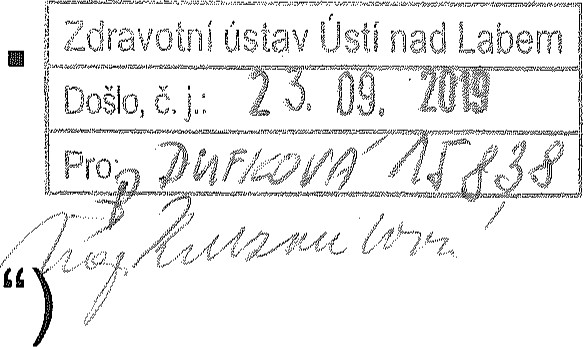 Zdravotní ústav Ústí nad Labem
Došlo, č. j.: 23. 09. 2019
Pro: DUFKOVÁ 15838
“)